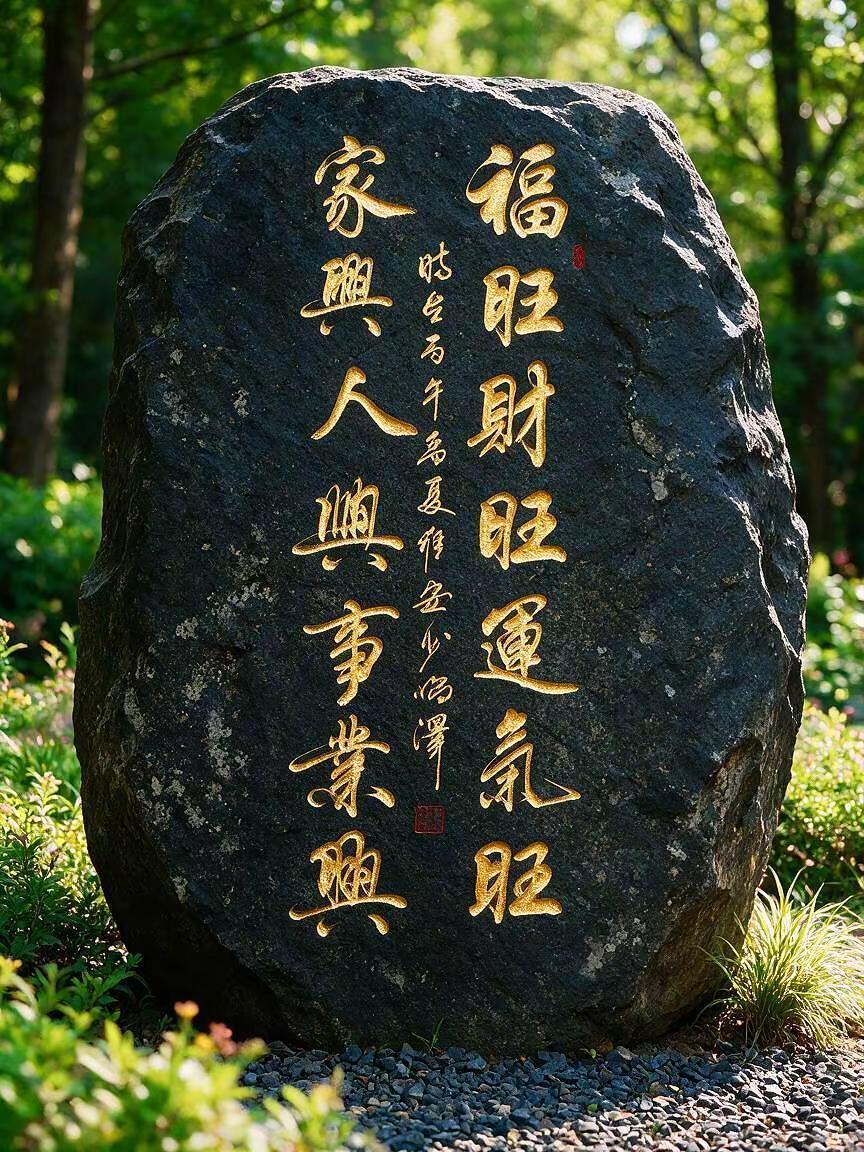 福旺財旺運氣旺
時在丙午孟夏雅安少鴻澤
家興人興事業興